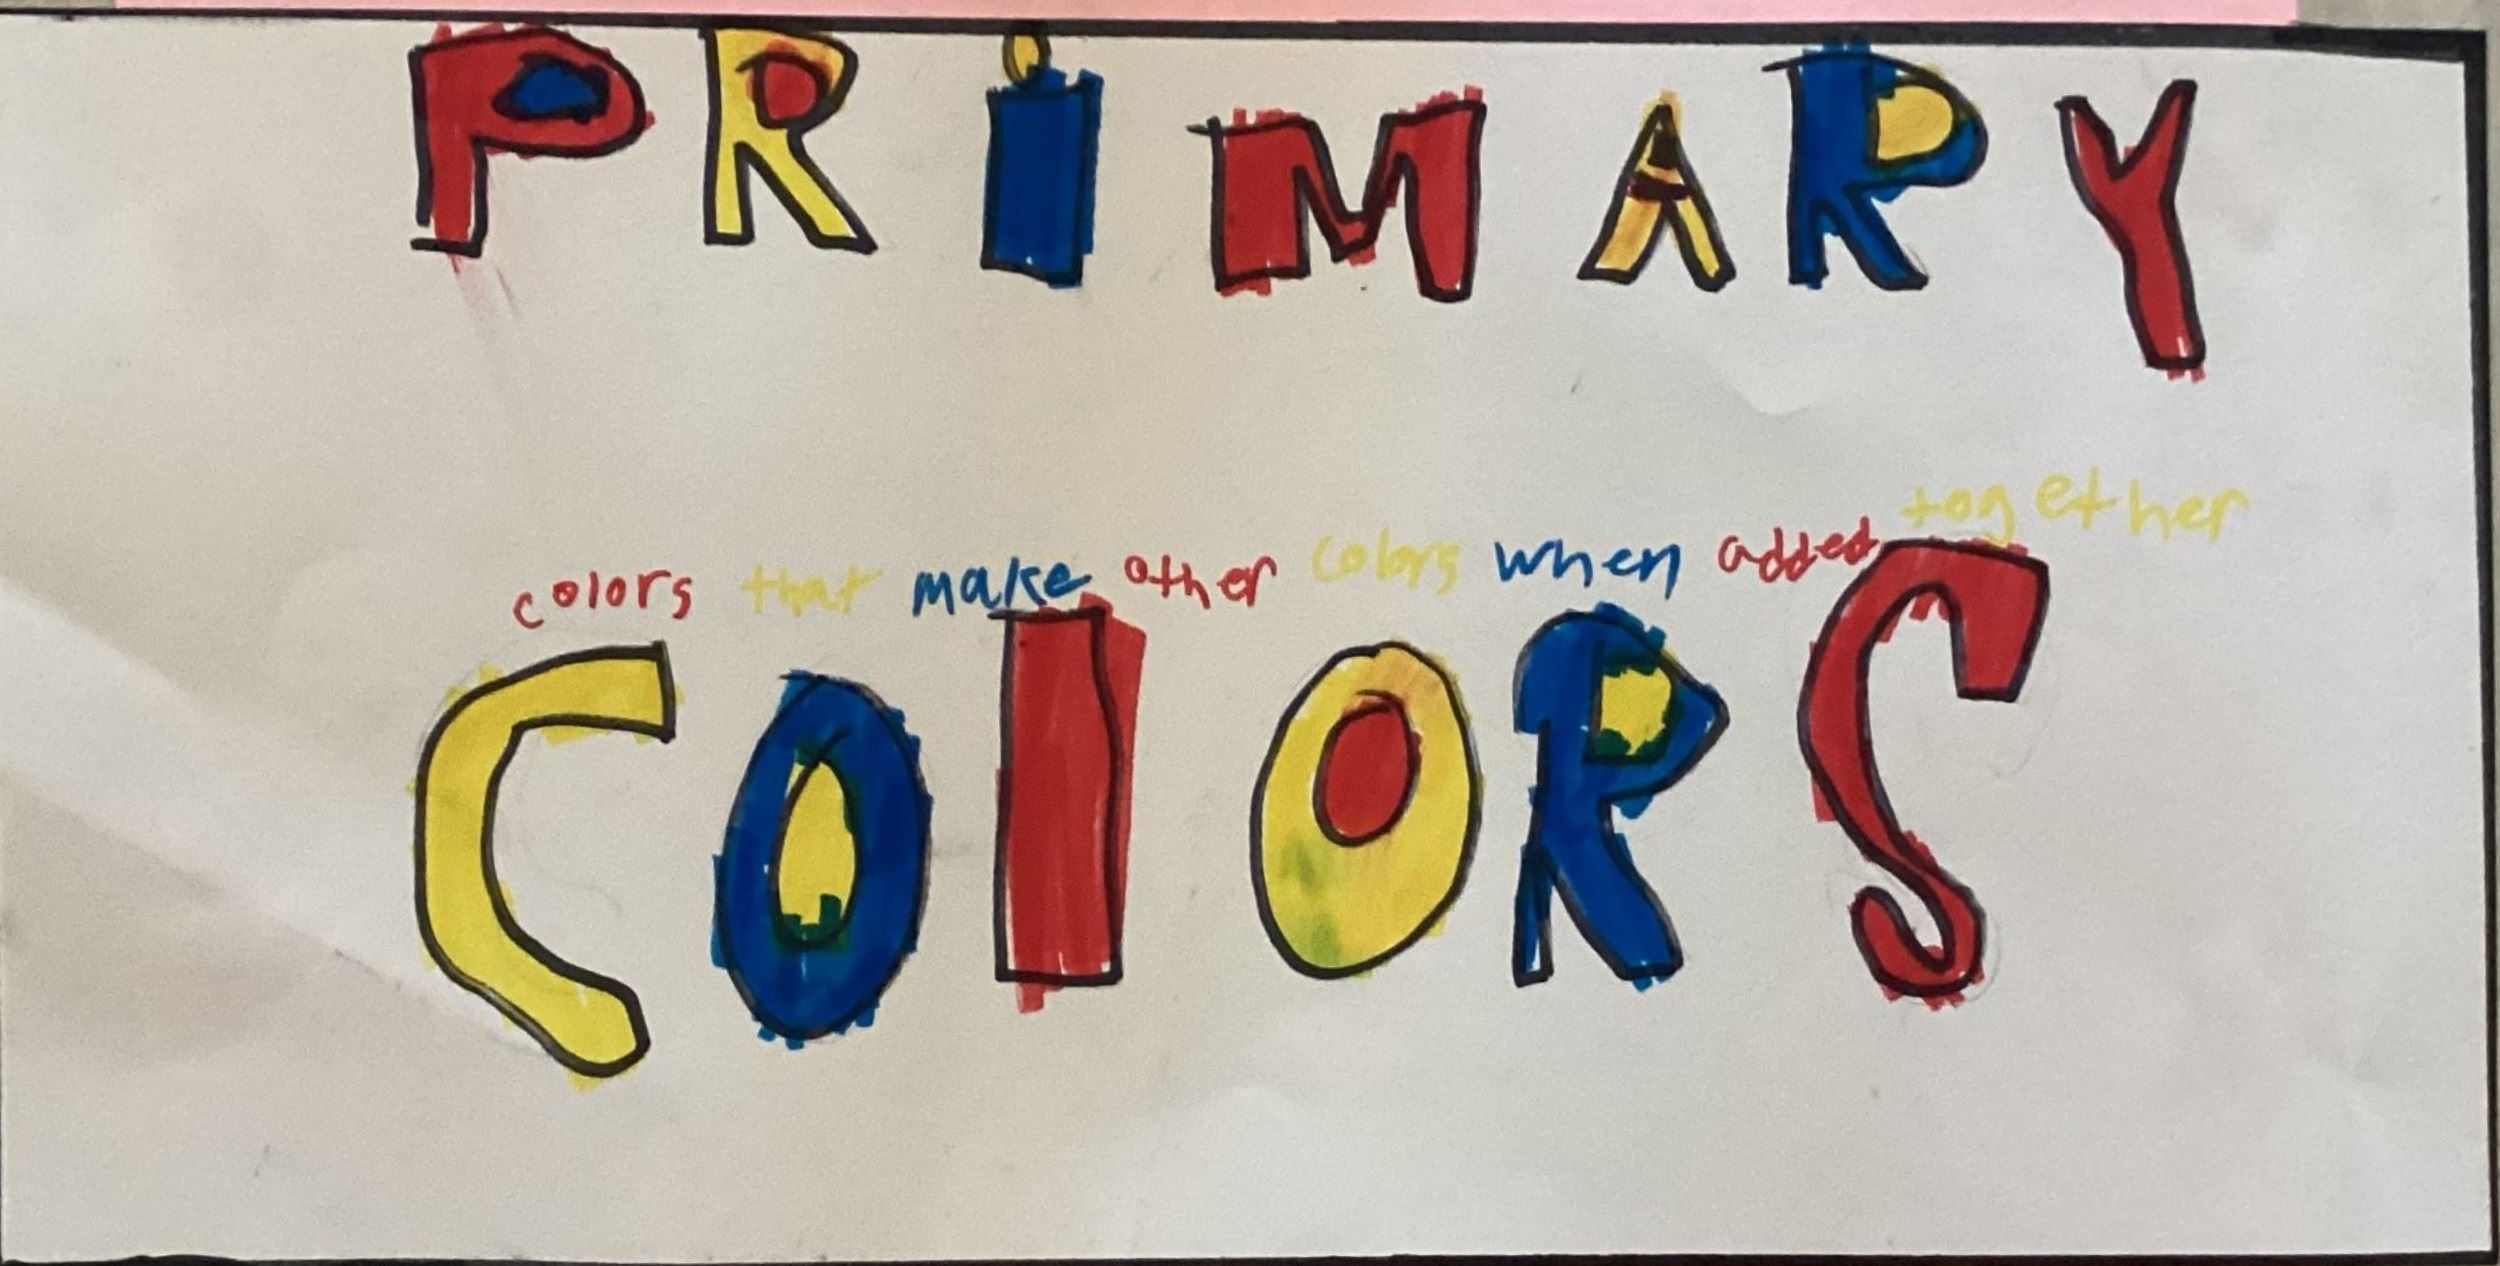 PRiMARY
colors that make other colors when added together
COlORS